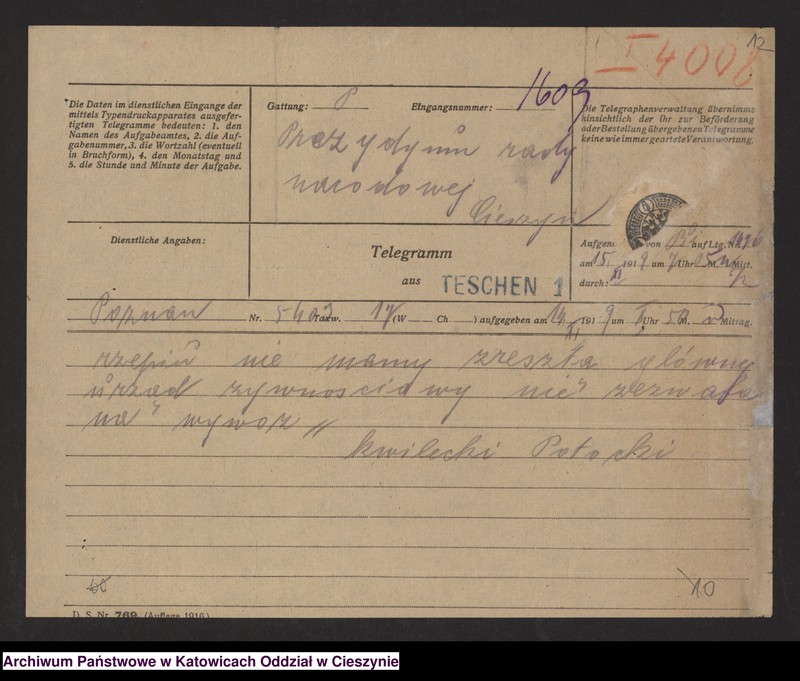 12
I 4008
Die Daten im dienstlichen Eingange der
mittels Typendruckapparates ausgefer-
tigten Telegramme bedeuten: 1. den
Namen des Aufgabeamtes, 2. die Auf-
gabenummer, 3. die Wortzahl (eventuell
in Bruchform), 4. den Monatstag und
5. die Stunde und Minute der Aufgabe.
Gattung: P Eingangsnummer: 1609
Prezydyum rady
narodowej
Cieszyn
Die Telegraphenverwaltung übernimmt
hinsichtlich der ihr zur Beförderung
oder Bestellung übergebenen Telegramme
keine wie immer geartete Verantwortung.
Dienstliche Angaben:
Telegramm
aus TESCHEN 1
Aufgen. von auf Ltg. Nr.
am 15 191 9 um Uhr M. Mitt.
durch:
Poznan Nr. Taxw. 17 (W Ch ) aufgegeben am 14 191 9 um Uhr M. Mittag.
rzepiu nie mamy zreszta główny
urzad zywnosciowy nie zezwala
na wywoz
kwilecki Potocki
10
D. S. Nr. 769. (Auflage 1916)
Archiwum Państwowe w Katowicach Oddział w Cieszynie